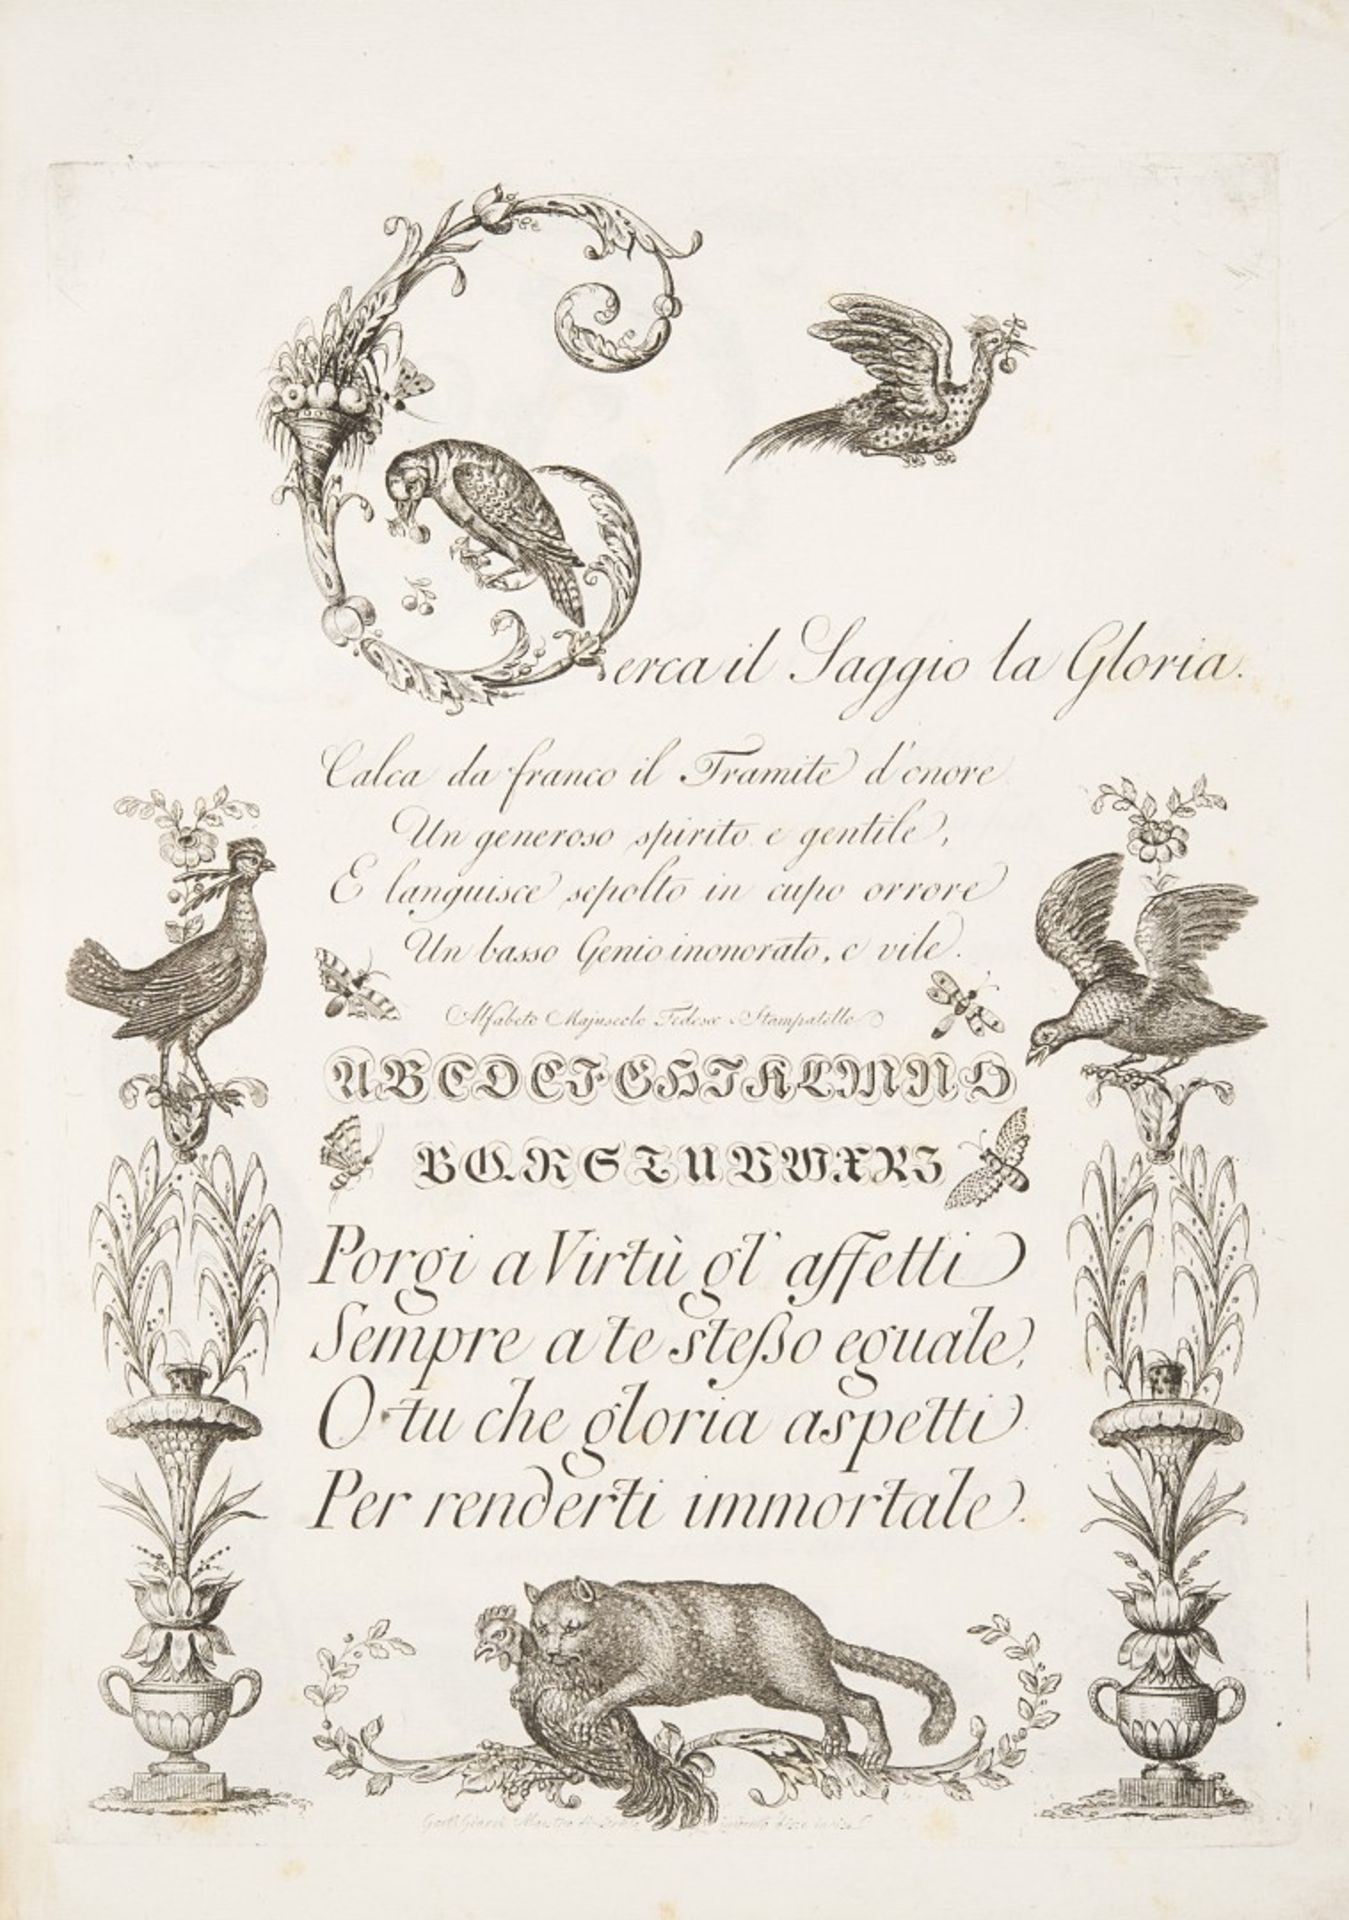 Cerca il Saggio la Gloria.
Calca da franco il Tramite d'onore
Un generoso spirito e gentile,
E languisce sepolto in cupo orrore
Un basso Genio inonorato, e vile.
Alfabeto Majuscolo Tedesco Stampatello
A B C D E F G H I K L M N O
P Q R S T U V W X Y Z
Porgi a Virtù gl' affetti
Sempre a te steßo eguale,
O tu che gloria aspetti
Per renderti immortale.
Maestro di